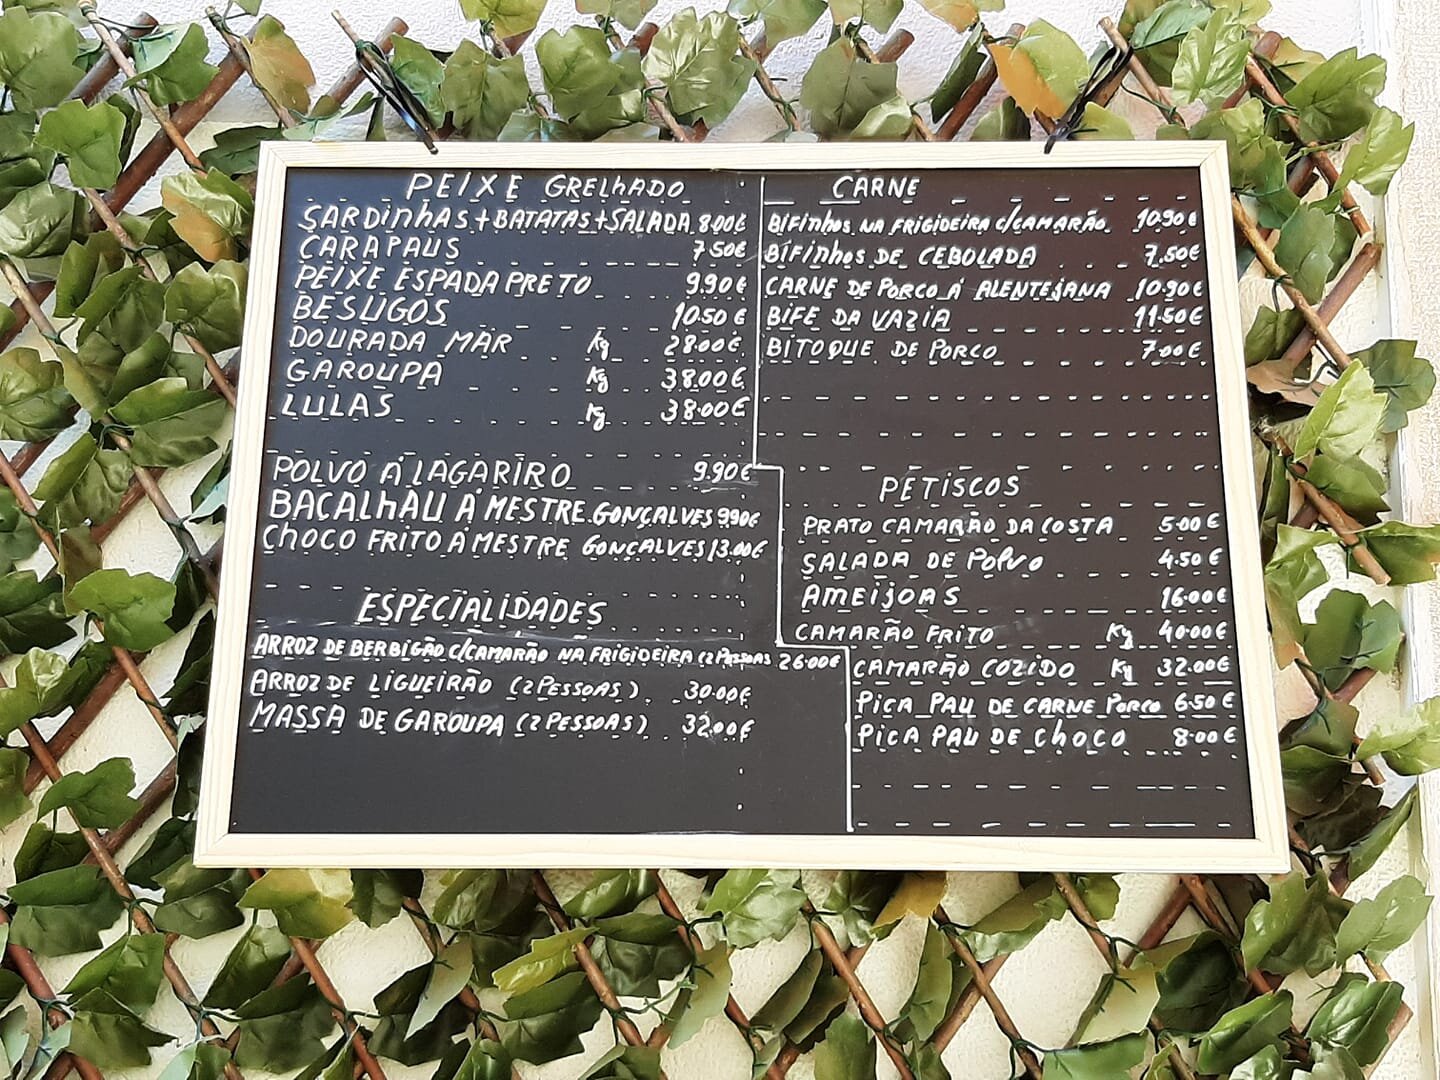 PEIXE GRELHADO
SARDINHAS + BATATAS + SALADA 8.00€
CARAPAUS 7.50€
PEIXE ESPADA PRETO 9.90€
BESUGOS 10.50€
DOURADA MAR Kg 28.00€
GAROUPA Kg 38.00€
LULAS Kg 38.00€
POLVO Á LAGARIRO 9.90€
BACALHAU A MESTRE GONÇALVES 9.90€
CHOCO FRITO A MESTRE GONÇALVES 13.00€
ESPECIALIDADES
ARROZ DE BERBIGÃO C/CAMARÃO NA FRIGIDEIRA (2 PESSOAS 26.00€
ARROZ DE LIGUEIRÃO (2 PESSOAS) 30.00€
MASSA DE GAROUPA (2 PESSOAS) 32.00€
CARNE
BIFINHOS NA FRIGIDEIRA C/CAMARÃO 10.90€
BIFINHOS DE CEBOLADA 7.50€
CARNE DE PORCO Á ALENTEJANA 10.90€
BIFE DA VAZIA 11.50€
BITOQUE DE PORCO 7.00€
PETISCOS
PRATO CAMARÃO DA COSTA 5.00€
SALADA DE POLVO 4.50€
AMEIJOAS 16.00€
CAMARÃO FRITO Kg 40.00€
CAMARÃO COZIDO Kg 32.00€
PICA PAU DE CARNE PORCO 6.50€
PICA PAU DE CHOCO 8.00€